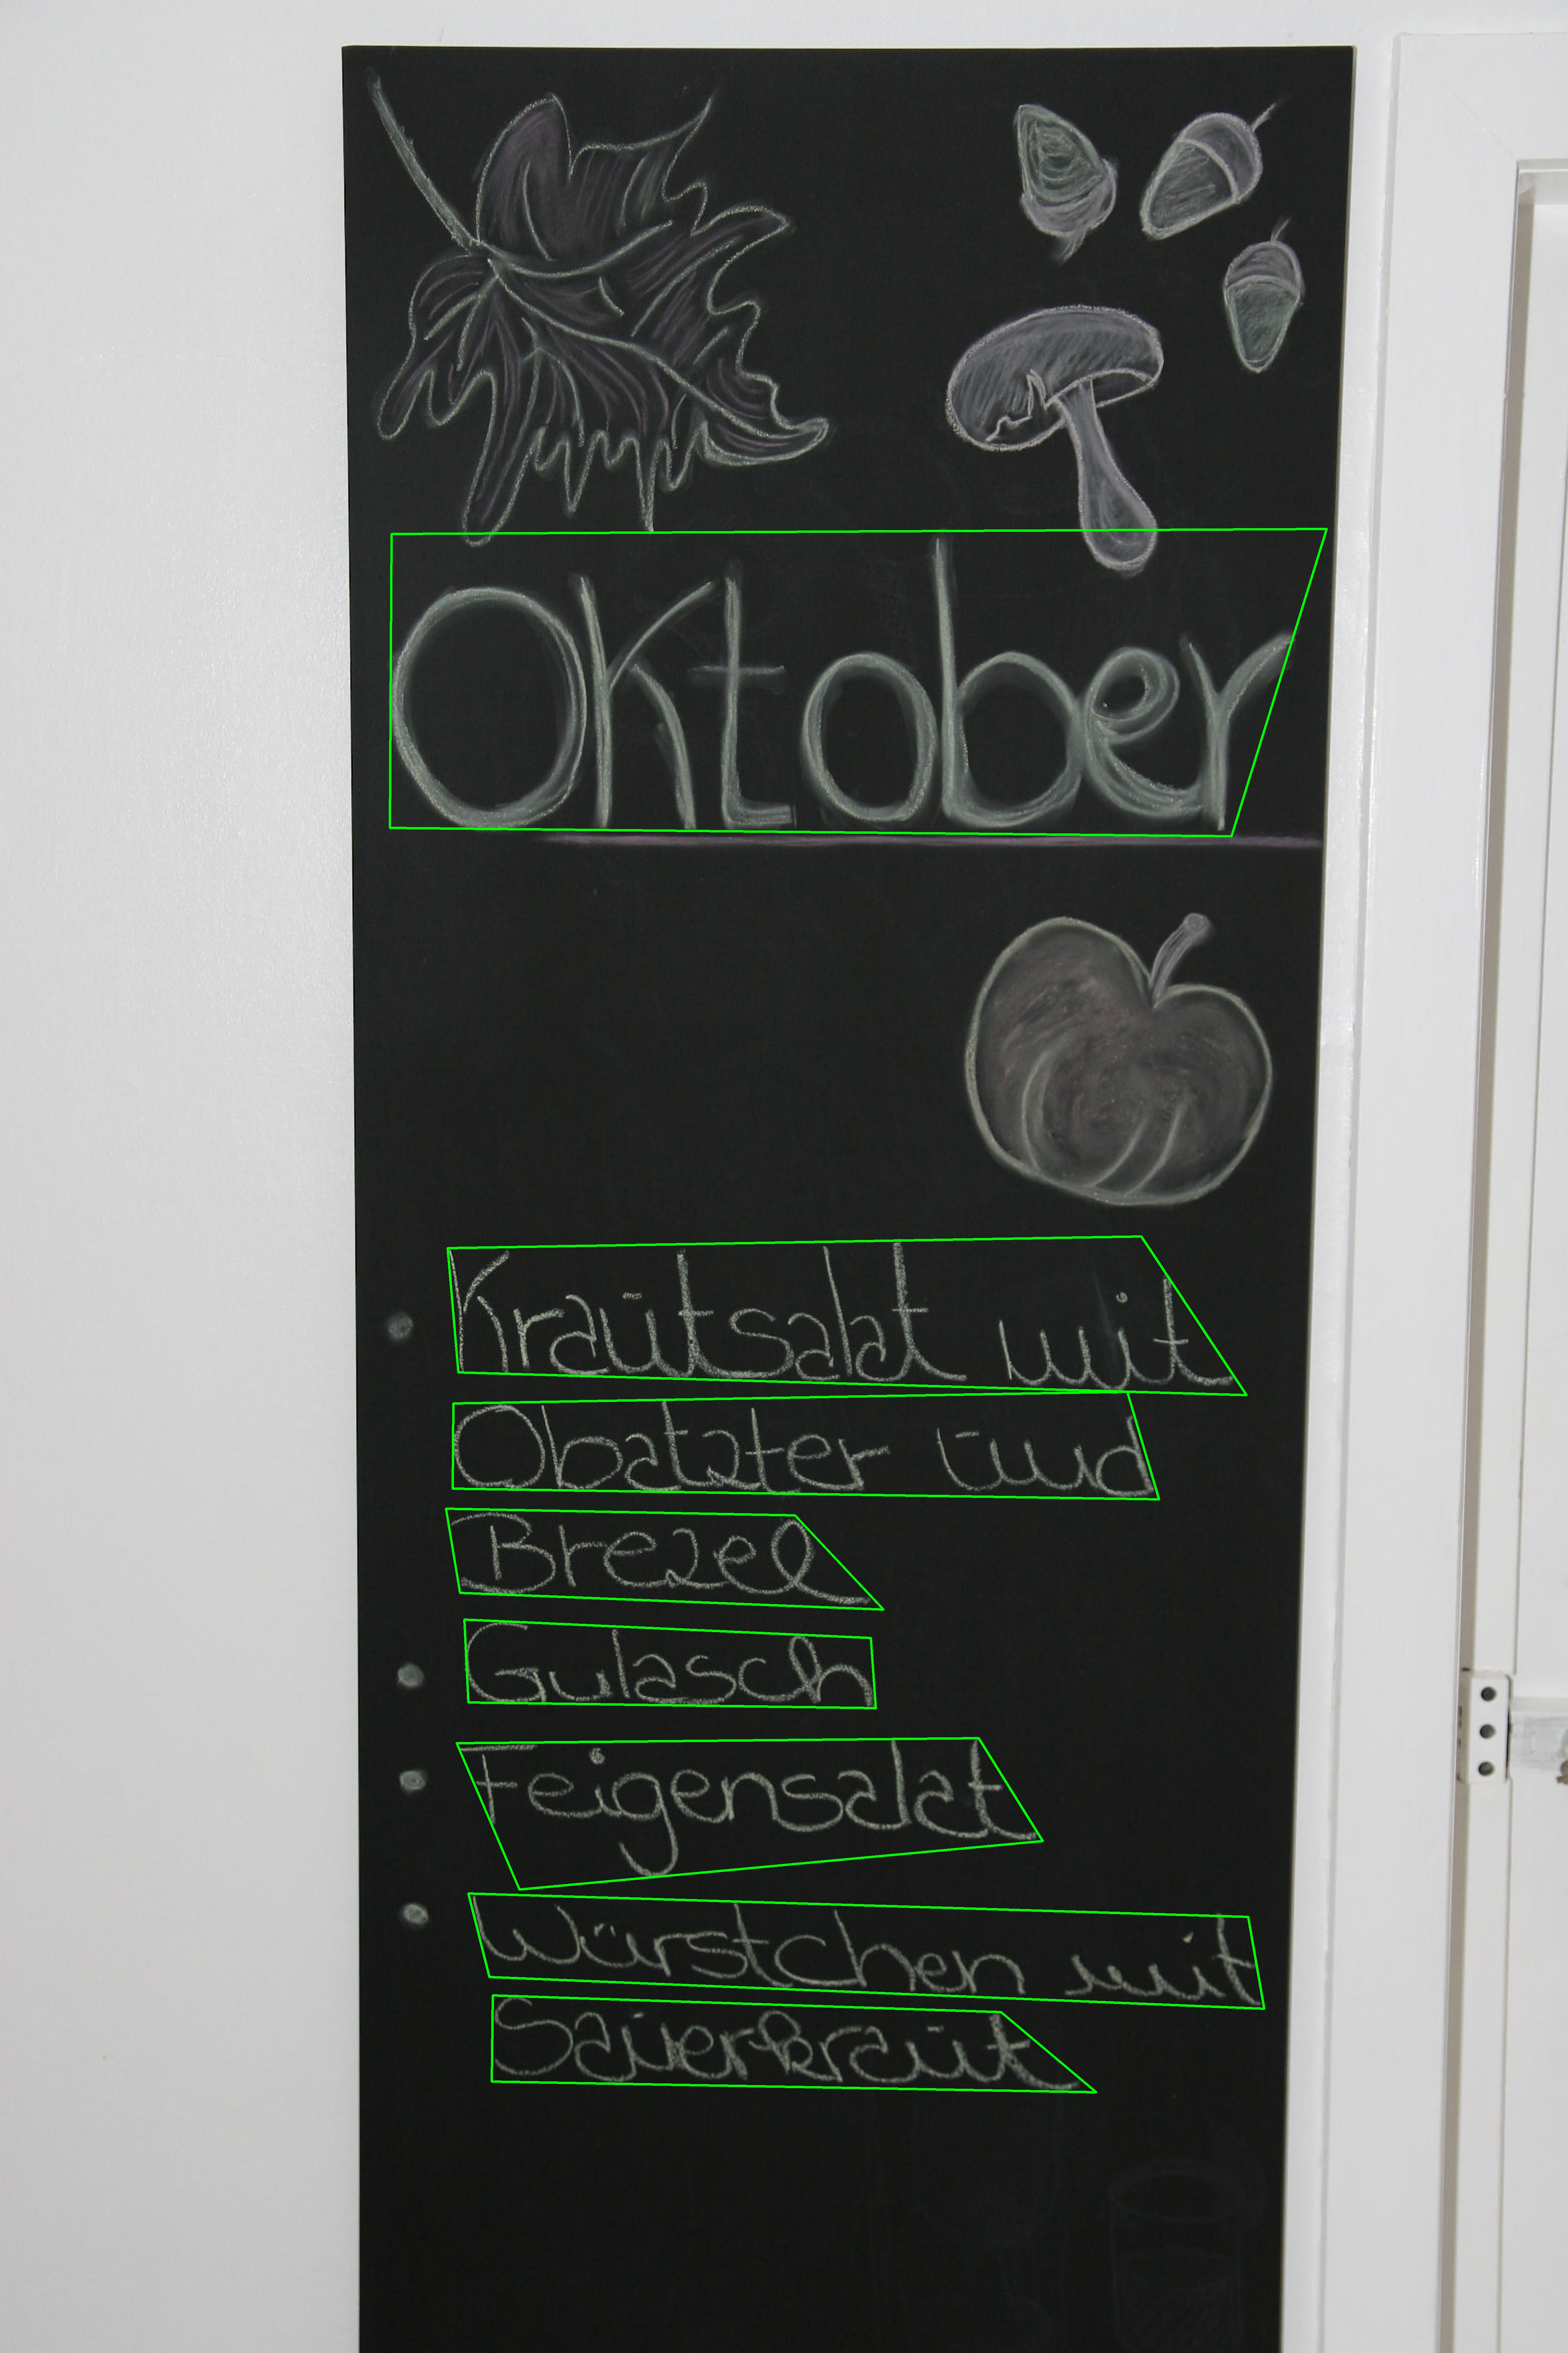 Oktober
Krautsalat mit
Obatzter und
Brezel
Gulasch
Feigensalat
Würstchen mit
Sauerkraut